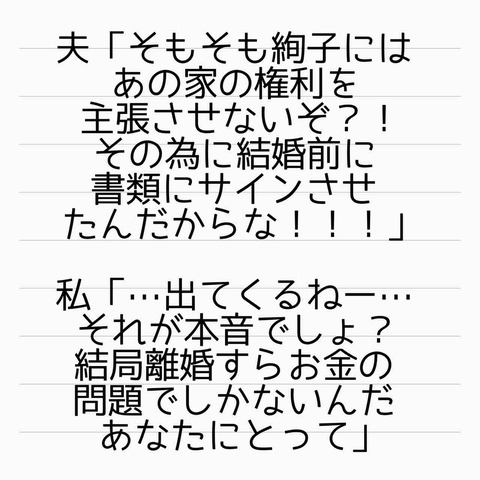 夫「そもそも絢子には
あの家の権利を
主張させないぞ？！
その為に結婚前に
書類にサインさせ
たんだからな！！！」
私「…出てくるねー…
それが本音でしょ？
結局離婚すらお金の
問題でしかないんだ
あなたにとって」